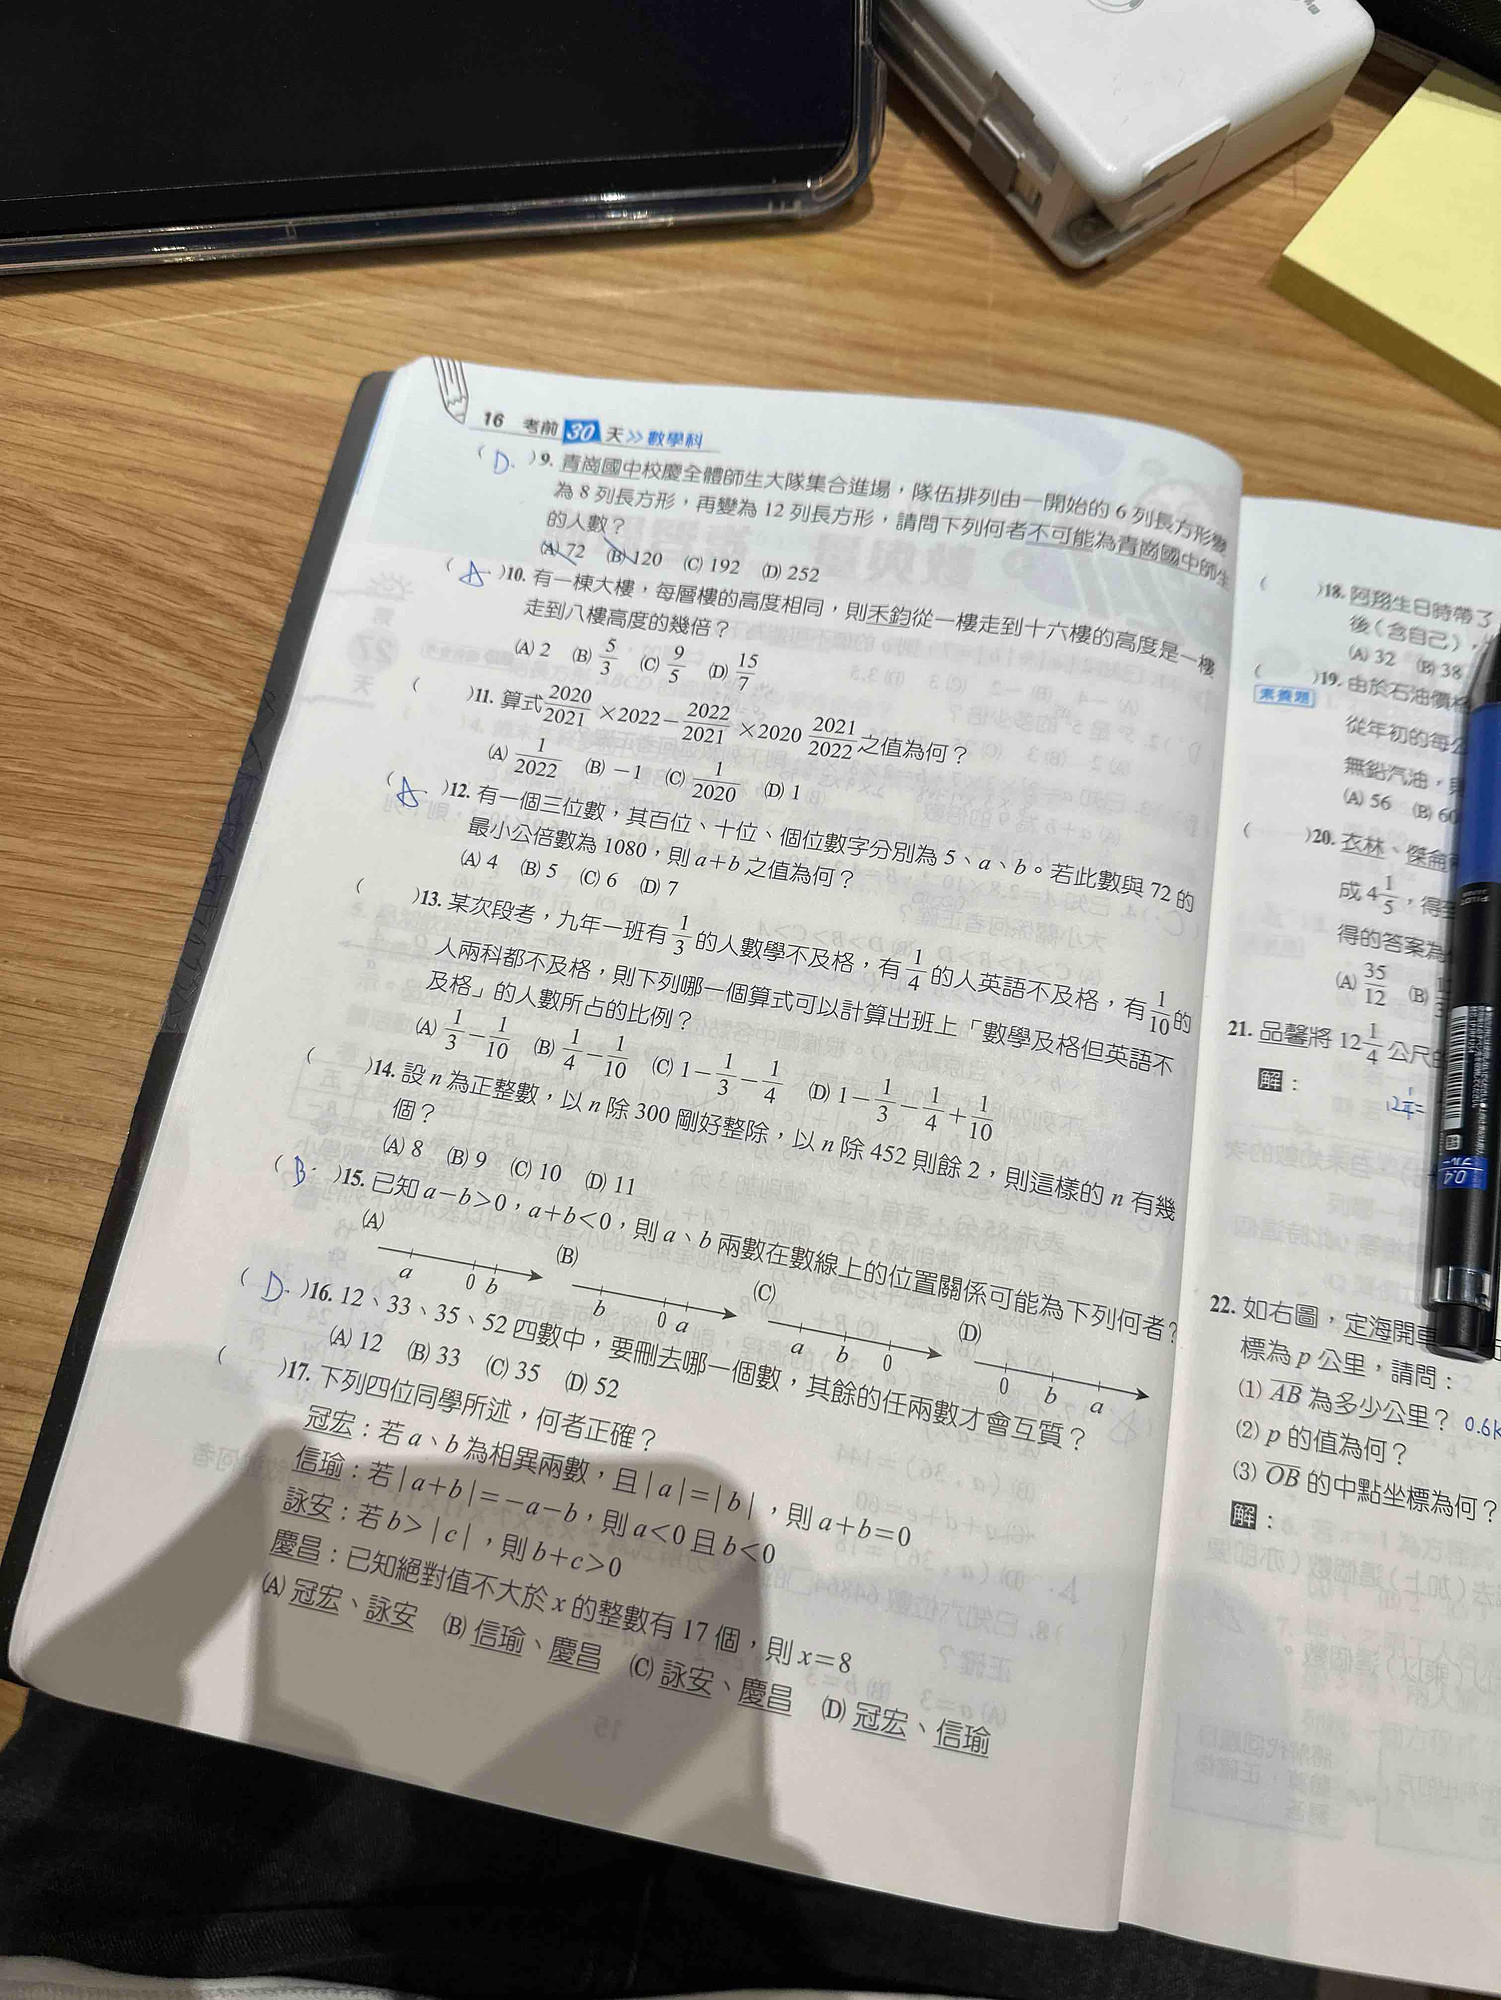 16 考前30天>>數學科
( D. )9. 青崗國中校慶全體師生大隊集合進場，隊伍排列由一開始的 6 列長方形變
為 8 列長方形，再變為 12 列長方形，請問下列何者不可能為青崗國中師生
的人數？
(A) 72 (B) 120 (C) 192 (D) 252
( A. )10. 有一棟大樓，每層樓的高度相同，則禾鈞從一樓走到十六樓的高度是一樓
走到八樓高度的幾倍？
(A) 2 (B) 5/3 (C) 9/5 (D) 15/7
( )11. 算式 2020/2021 ×2022－2022/2021 ×2020 2021/2022 之值為何？
(A) 1/2022 (B) －1 (C) 1/2020 (D) 1
( A. )12. 有一個三位數，其百位、十位、個位數字分別為 5、a、b。若此數與 72 的
最小公倍數為 1080，則 a+b 之值為何？
(A) 4 (B) 5 (C) 6 (D) 7
( )13. 某次段考，九年一班有 1/3 的人數學不及格，有 1/4 的人英語不及格，有 1/10 的
人兩科都不及格，則下列哪一個算式可以計算出班上「數學及格但英語不
及格」的人數所占的比例？
(A) 1/3－1/10 (B) 1/4－1/10 (C) 1－1/3－1/4 (D) 1－1/3－1/4+1/10
( )14. 設 n 為正整數，以 n 除 300 剛好整除，以 n 除 452 則餘 2，則這樣的 n 有幾
個？
(A) 8 (B) 9 (C) 10 (D) 11
( B. )15. 已知 a－b>0，a+b<0，則 a、b 兩數在數線上的位置關係可能為下列何者？
(A) a 0 b (B) b 0 a (C) a b 0 (D) 0 b a
( D. )16. 12、33、35、52 四數中，要刪去哪一個數，其餘的任兩數才會互質？
(A) 12 (B) 33 (C) 35 (D) 52
( )17. 下列四位同學所述，何者正確？
冠宏：若 a、b 為相異兩數，且|a|=|b|，則 a+b=0
信瑜：若|a+b|=－a－b，則 a<0 且 b<0
詠安：若 b>|c|，則 b+c>0
慶昌：已知絕對值不大於 x 的整數有 17 個，則 x=8
(A) 冠宏、詠安 (B) 信瑜、慶昌 (C) 詠安、慶昌 (D) 冠宏、信瑜
( )18. 阿翔生日時帶了
後（含自己），
(A) 32 (B) 38
( )19. 由於石油價格
素養題
從年初的每公
無鉛汽油，
(A) 56 (B) 60
( )20. 衣林、傑倫
成 4 1/5，得
得的答案為
(A) 35/12 (B)
21. 品馨將 12 1/4 公尺
解：
12 1/4 =
22. 如右圖，定海開車
標為 p 公里，請問：
(1) AB 為多少公里？ 0.6k
(2) p 的值為何？
(3) OB 的中點坐標為何？
解：
PILOT
0.4